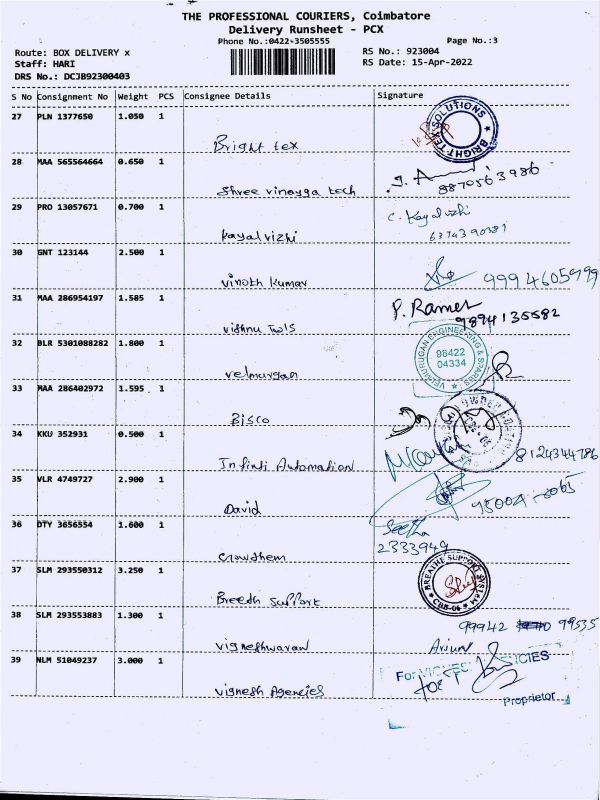 THE PROFESSIONAL COURIERS, Coimbatore
Delivery Runsheet - PCX
Phone No.:0422-3505555
Page No.:3
Route: BOX DELIVERY x
RS No.: 923004
Staff: HARI
RS Date: 15-Apr-2022
DRS No.: DCJB92300403
S No Consignment No Weight PCS Consignee Details Signature
27 PLN 1377650 1.050 1
Bright tex
BRIGHT TEX SOLUTIONS
28 MAA 565564664 0.650 1
Shree vinayga tech
8870563986
29 PRO 13057671 0.700 1
kayalvizhi
C. Kayalvizhi
6374390381
30 GNT 123144 2.500 1
vinoth kumar
9994605999
31 MAA 286954197 1.585 1
vishnu tools
P. Ramer
9894135582
32 BLR 5301088282 1.800 1
velmurgan
VELMURUGAN ENGINEERING & SPARES
98422
04334
33 MAA 286402972 1.595 1
Bisco
34 KKU 352931 0.500 1
Infiniti Automation
8124344786
35 VLR 4749727 2.900 1
David
36 DTY 3656554 1.600 1
Crowdhem
Seetha
2333949
37 SLM 293550312 3.250 1
Breedh support
BREATHE SUPPORT SYSTEM
CBB-06
38 SLM 293553883 1.300 1
vigneshwaran
99942 99535
Arjun
39 NLM 51049237 3.000 1
vignesh Agencies
For VIGNESH AGENCIES
Proprietor